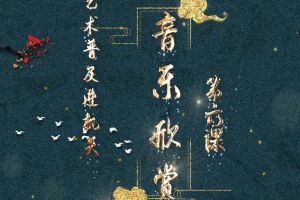 艺术普及进机关
音乐欣赏
第六课